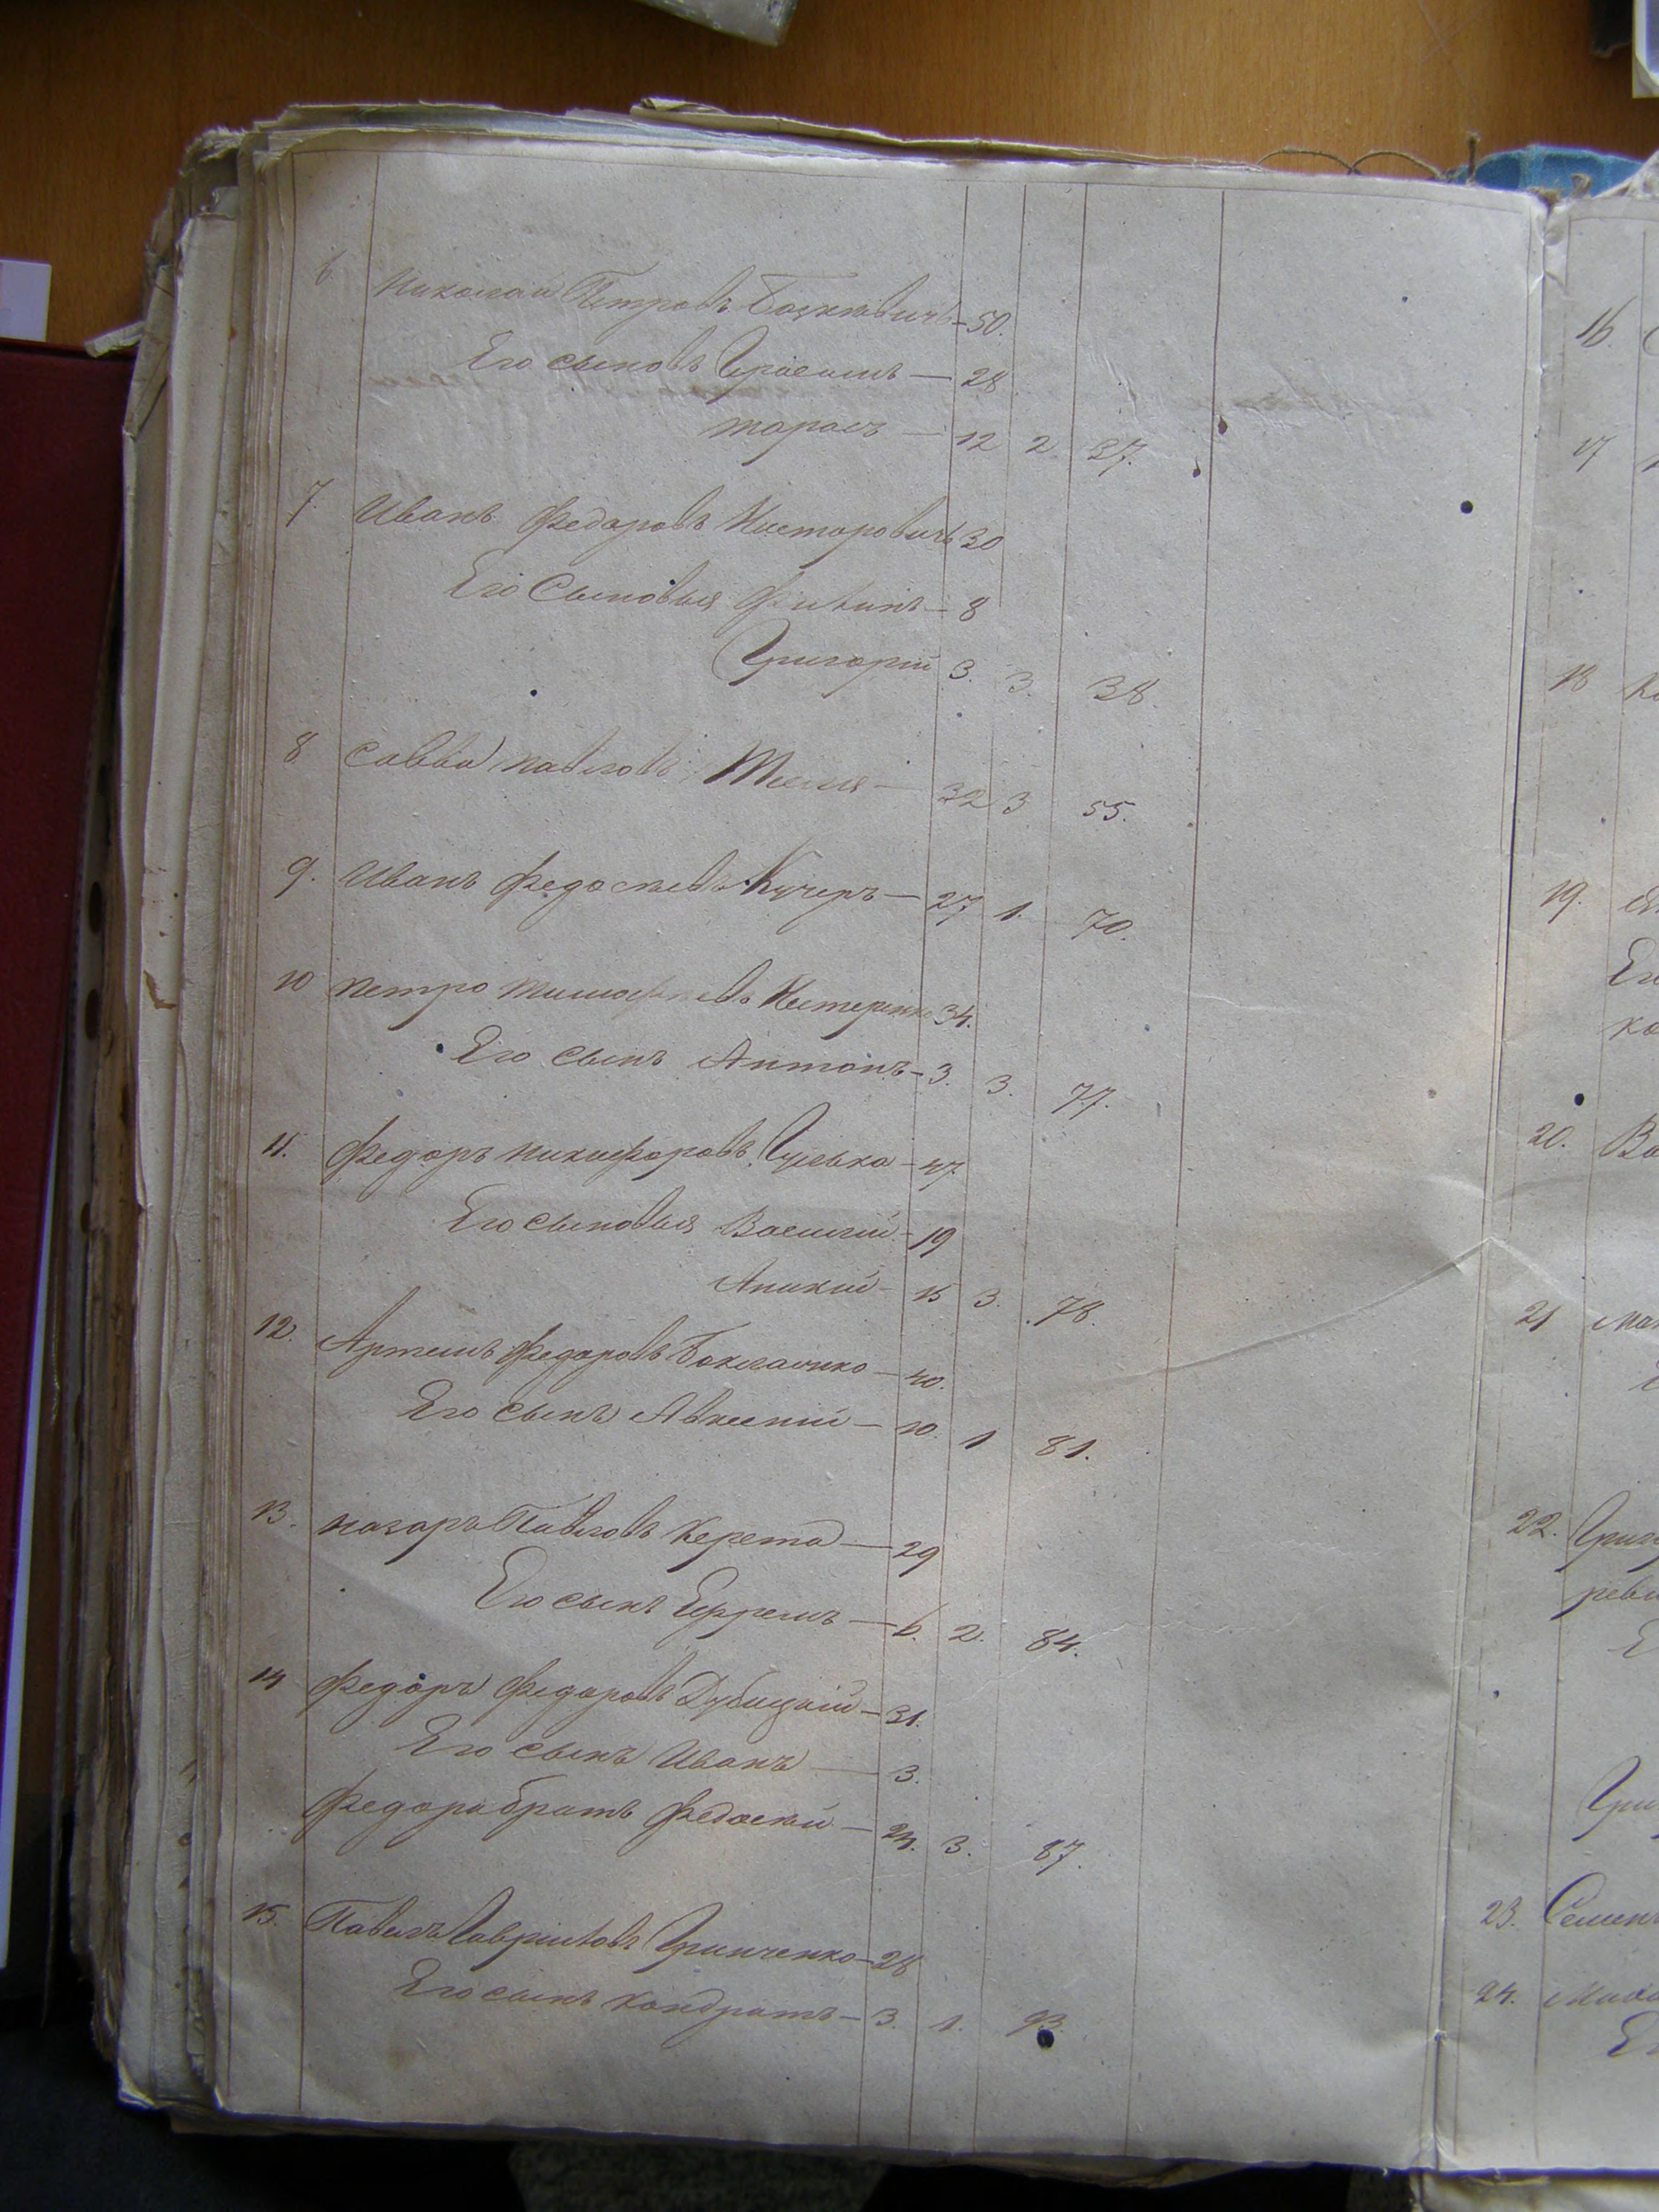 6. Николай Петровъ — 50.
Его сыновъ Герасимъ — 28
тарасъ — 12 2. 37.
7. Иванъ Федоровъ Нестеровичъ 30
Его Сыновья Филипъ — 8
Григорій 3. 3. 38.
8 Савва павловъ — 32 3 55.
9. Иванъ Федосіевъ Кучеръ — 27 1. 70.
10 петро тимофіевъ Нестеренко 34.
Его сынъ Антонъ — 3. 3. 77.
11. Федоръ никифоровъ Гуська — 47.
Его сыновья Василій — 19
Аникій — 15 3. 78.
12. Артемъ Федоровъ — 40.
Его сынъ Авксентій — 10. 1 81.
13. назаръ Павловъ Керета — 29
Его сынъ Ефремъ — 6. 2. 84.
14 Федоръ Федоровъ Дубицкій — 31.
Его сынъ Иванъ — 3.
Федора братъ Федосій — 24. 3. 87.
15. Павелъ Гавриловъ Гринченко — 28
Его сынъ кондратъ — 3. 1. 93.
16.
17
18
19.
Ег
20. Ва
21
22. Григ
реви
Гри
23. Семенъ
24. Миха
Ег